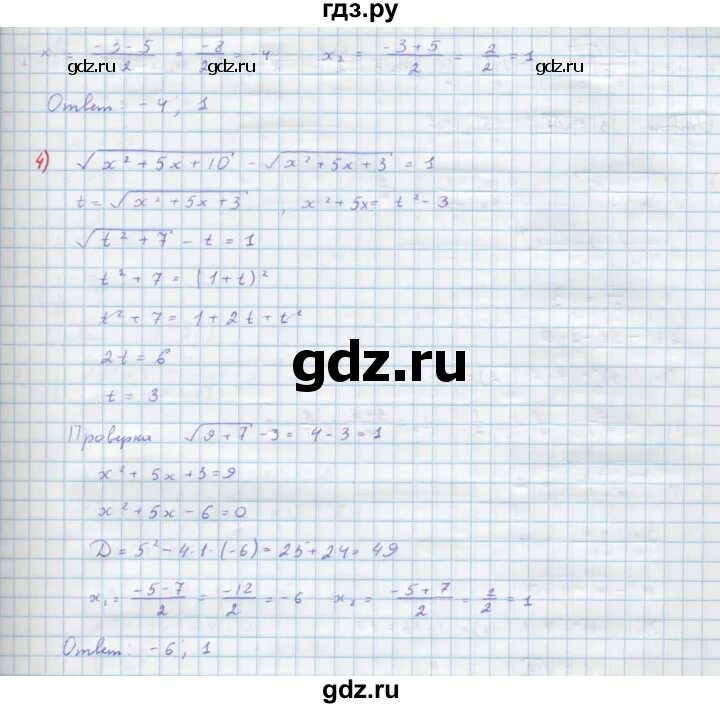 гдз.ру
x = (-3-5)/2 = -8/2 = -4    x₂ = (-3+5)/2 = 2/2 = 1
gdz.ru gdz.ru gdz.ru
Ответ: -4; 1
4) √(x²+5x+10) - √(x²+5x+3) = 1
t = √(x²+5x+3), x²+5x = t²-3
√(t²+7) - t = 1
t²+7 = (1+t)²
t²+7 = 1+2t+t²
2t = 6
gdz.ru
t = 3
Проверка √(9+7) -3 = 4-3 = 1
x²+5x+3=9
x²+5x-6=0
D = 5²-4·1·(-6) = 25+24 = 49
x₁ = (-5-7)/2 = -12/2 = -6    x₂ = (-5+7)/2 = 2/2 = 1
Ответ: -6; 1
gdz.ru